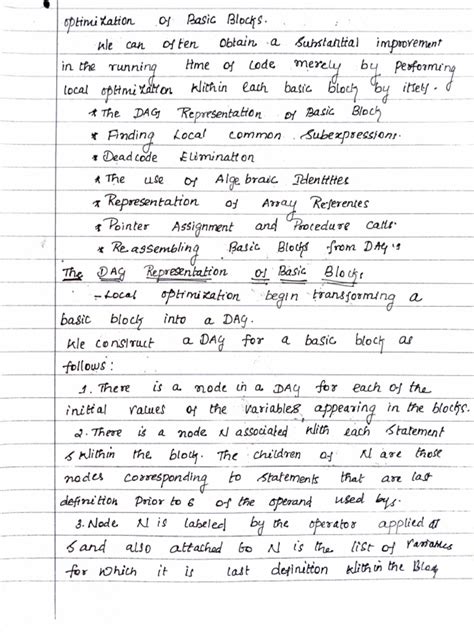 optimization of Basic Blocks.
We can often obtain a substantial improvement
in the running time of code merely by performing
local optimization within each basic block by itself.
* The DAG Representation of Basic Block
* Finding Local common Subexpressions.
* Deadcode Elimination
* The use of Algebraic Identities
* Representation of Array References
* Pointer Assignment and Procedure calls.
* Reassembling Basic Blocks from DAG's
The DAG Representation of Basic Blocks
- Local optimization begin transforming a
basic block into a DAG.
We construct a DAG for a basic block as
follows :
1. There is a node in a DAG for each of the
initial values of the variables appearing in the blocks.
2. There is a node N associated with each statement
s within the block. The children of N are those
nodes corresponding to statements that are last
definition prior to s of the operand used by s.
3. Node N is labeled by the operator applied at
s and also attached to N is the list of variables
for which it is last definition within the Block